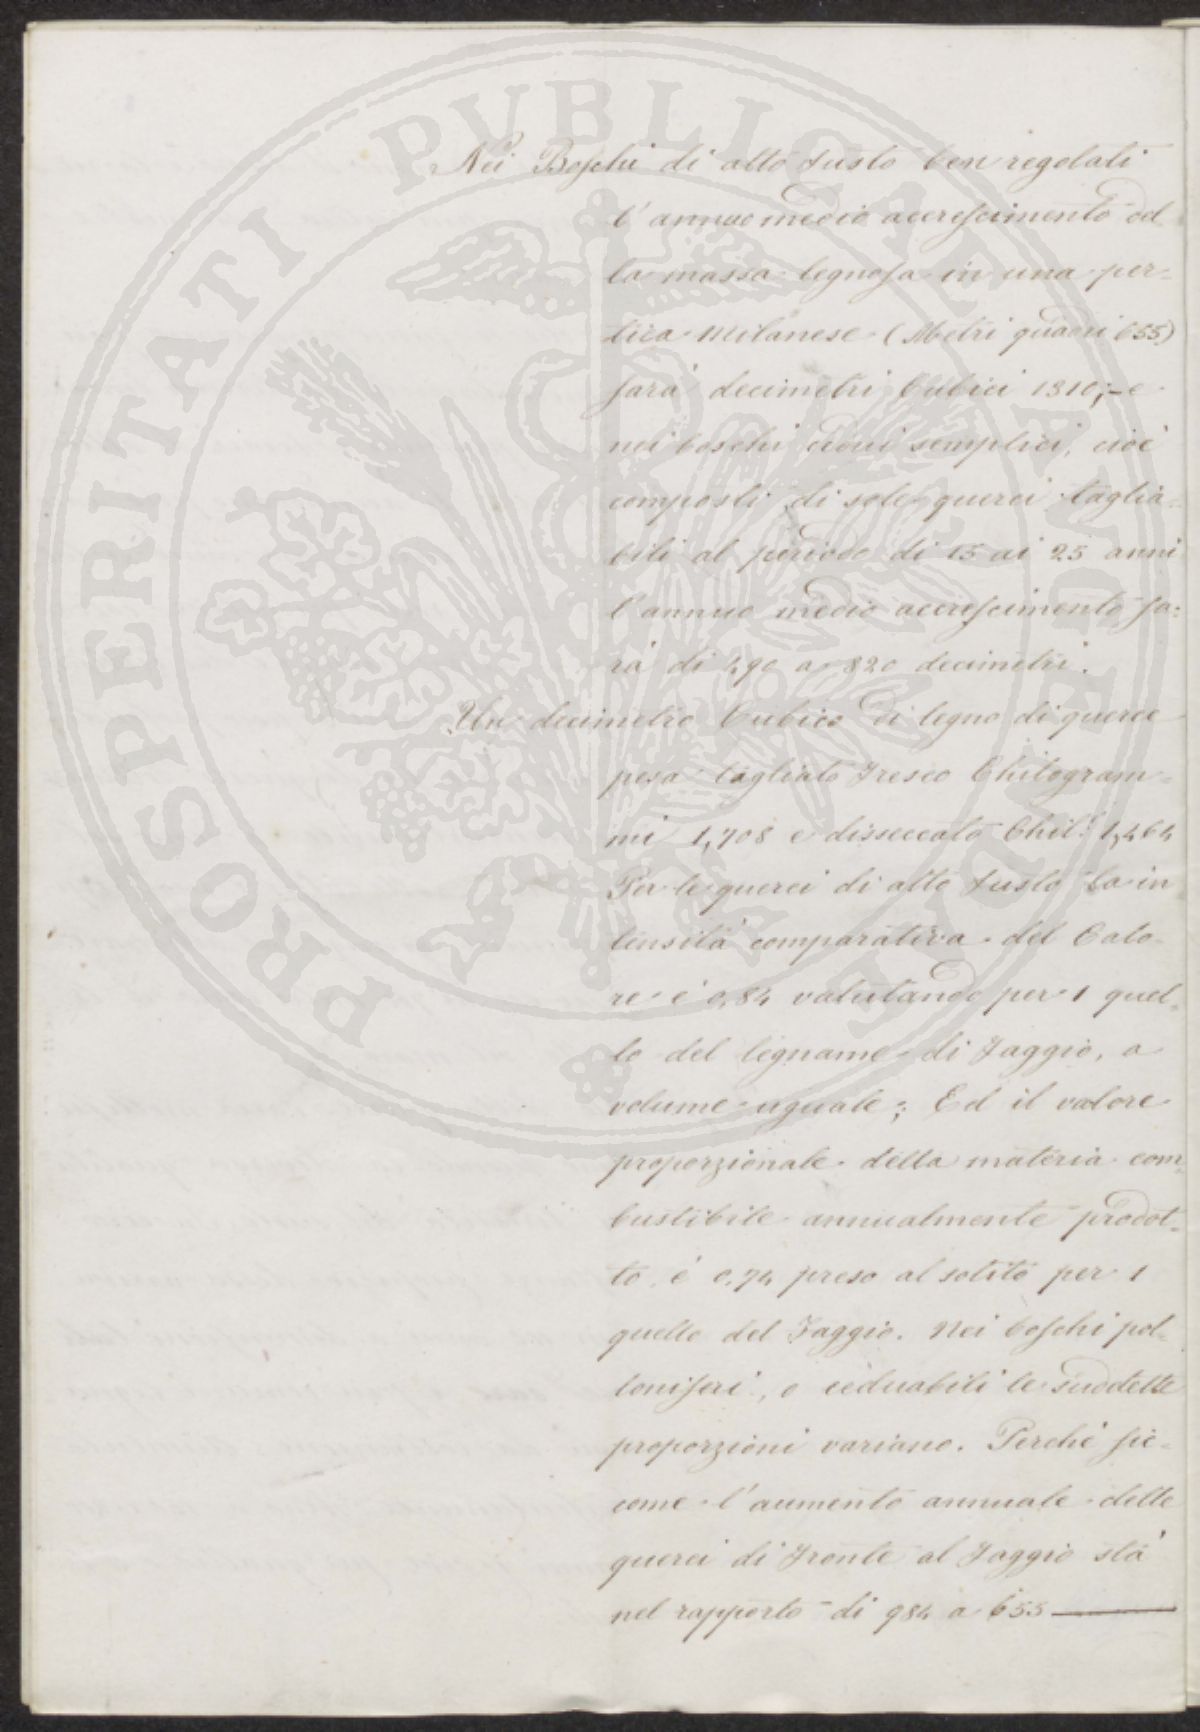 Nei Boschi di alto fusto ben regolati
l'annuo medio accrescimento del
la massa legnosa in una per-
tica Milanese (Metri quadri 655)
sarà decimetri Cubici 1310;- e
nei boschi cedui semplici, cioè
composti di sole querci taglia-
bili al periodo di 15 ai 25 anni
l'annuo medio accrescimento sa-
rà di 490 a 820 decimetri.
Un decimetro Cubico di legno di querce
pesa tagliato fresco Chilogram-
mi 1,708 e disseccato Chil.i 1,464
Per le querci di alto fusto la in
tensità comparativa del Calo-
re è 0,84 valutando per 1 quel-
lo del legname di Faggio, a
volume uguale; Ed il valore
proporzionale della materia com-
bustibile annualmente prodot-
to è 0,74 preso al solito per 1
quello del Faggio. Nei boschi pol-
loniferi, o ceduabili le suddette
proporzioni variano. Perchè sic-
come l'aumento annuale delle
querci di fronte al Faggio stà
nel rapporto di 984 a 655
PROSPERITATI PUBLICAE AUGENDAE